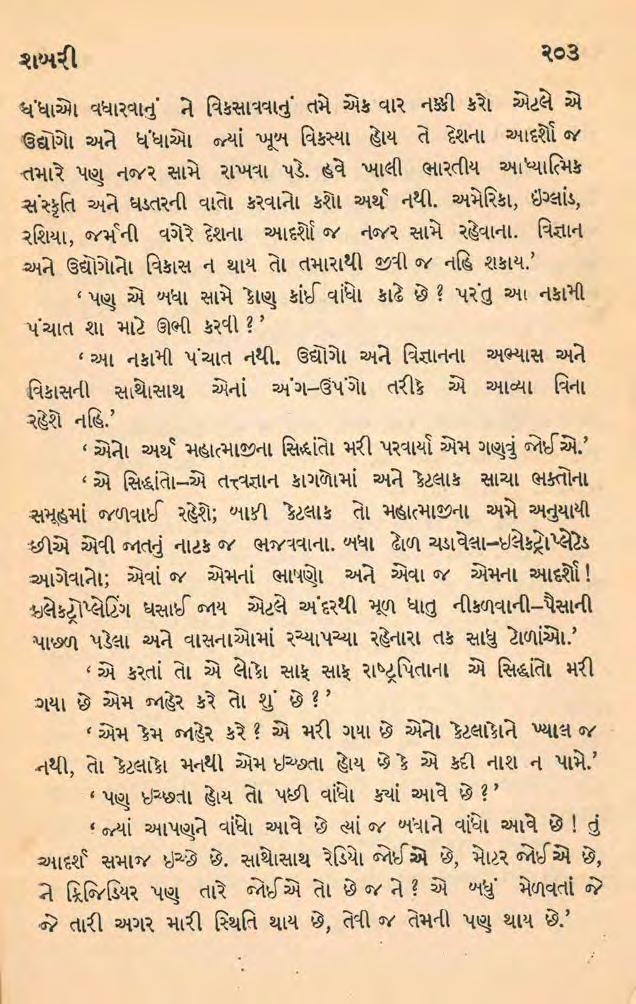 શબરી
૨૦૩
ધંધાઓ વધારવાનું ને વિકસાવવાનું તમે એક વાર નક્કી કરો એટલે એ
ઉદ્યોગો અને ધંધાઓ જ્યાં ખૂબ વિકસ્યા હોય તે દેશના આદર્શો જ
તમારે પણ નજર સામે રાખવા પડે. હવે ખાલી ભારતીય આધ્યાત્મિક
સંસ્કૃતિ અને ઘડતરની વાતો કરવાનો કશો અર્થ નથી. અમેરિકા, ઇંગ્લાંડ,
રશિયા, જર્મની વગેરે દેશના આદર્શો જ નજર સામે રહેવાના. વિજ્ઞાન
અને ઉદ્યોગોનો વિકાસ ન થાય તો તમારાથી જીવી જ નહિ શકાય.’
‘ પણ એ બધા સામે કોણ કાંઈ વાંધો કાઢે છે ? પરંતુ આ નકામી
પંચાત શા માટે ઊભી કરવી ? ’
‘ આ નકામી પંચાત નથી. ઉદ્યોગો અને વિજ્ઞાનના અભ્યાસ અને
વિકાસની સાથોસાથ એનાં અંગ–ઉપંગો તરીકે એ આવ્યા વિના
રહેશે નહિ.’
‘ એનો અર્થ મહાત્માજીના સિદ્ધાંતો મરી પરવાર્યા એમ ગણવું જોઈએ.’
‘ એ સિદ્ધાંતો–એ તત્ત્વજ્ઞાન કાગળોમાં અને કેટલાક સાચા ભક્તોના
સમૂહમાં જળવાઈ રહેશે; બાકી કેટલાક તો મહાત્માજીના અમે અનુયાયી
છીએ એવી જાતનું નાટક જ ભજવવાના. બધા ઢોળ ચડાવેલા–ઇલેકટ્રોપ્લેટેડ
આગેવાનો; એવાં જ એમનાં ભાષણો અને એવા જ એમના આદર્શો !
ઇલેકટ્રોપ્લેટિંગ ઘસાઈ જાય એટલે અંદરથી મૂળ ધાતુ નીકળવાની–પૈસાની
પાછળ પડેલા અને વાસનાઓમાં રચ્યાપચ્યા રહેનારા તક સાધુ ટોળાંઓ.’
‘ એ કરતાં તો એ લોકો સાફ સાફ રાષ્ટ્રપિતાના એ સિદ્ધાંતો મરી
ગયા છે એમ જાહેર કરે તો શું છે ? ’
‘ એમ કેમ જાહેર કરે ? એ મરી ગયા છે એનો કેટલાકોને ખ્યાલ જ
નથી, તો કેટલાકો મનથી એમ ઇચ્છતા હોય છે કે એ કદી નાશ ન પામે.’
‘ પણ ઇચ્છતા હોય તો પછી વાંધો ક્યાં આવે છે ? ’
‘ જ્યાં આપણને વાંધો આવે છે ત્યાં જ બધાને વાંધો આવે છે ! તું
આદર્શ સમાજ ઇચ્છે છે. સાથોસાથ રેડિયો જોઈએ છે, મોટર જોઈએ છે,
ને ફ્રિજિડિયર પણ તારે જોઈએ તો છે જ ને ? એ બધું મેળવતાં જે
જે તારી અગર મારી સ્થિતિ થાય છે, તેવી જ તેમની પણ થાય છે.’